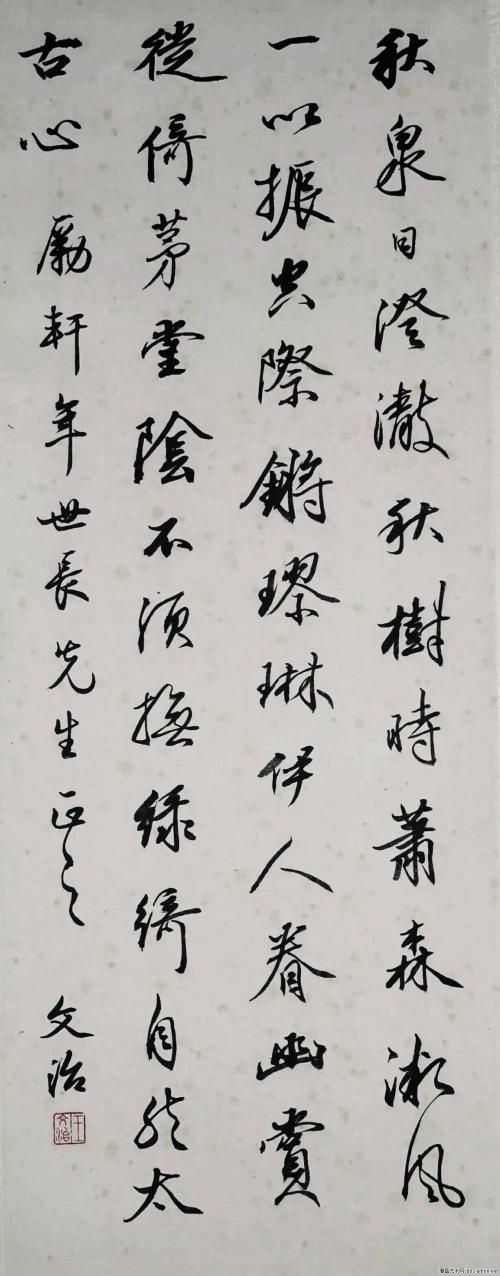 秋泉日澄澈秋樹時蕭森漱風
一以振空際鏘璆琳伊人眷幽賞
徙倚茅堂陰不須撫綠綺自然太
古心
勵軒年世長先生正之
文治
王文治